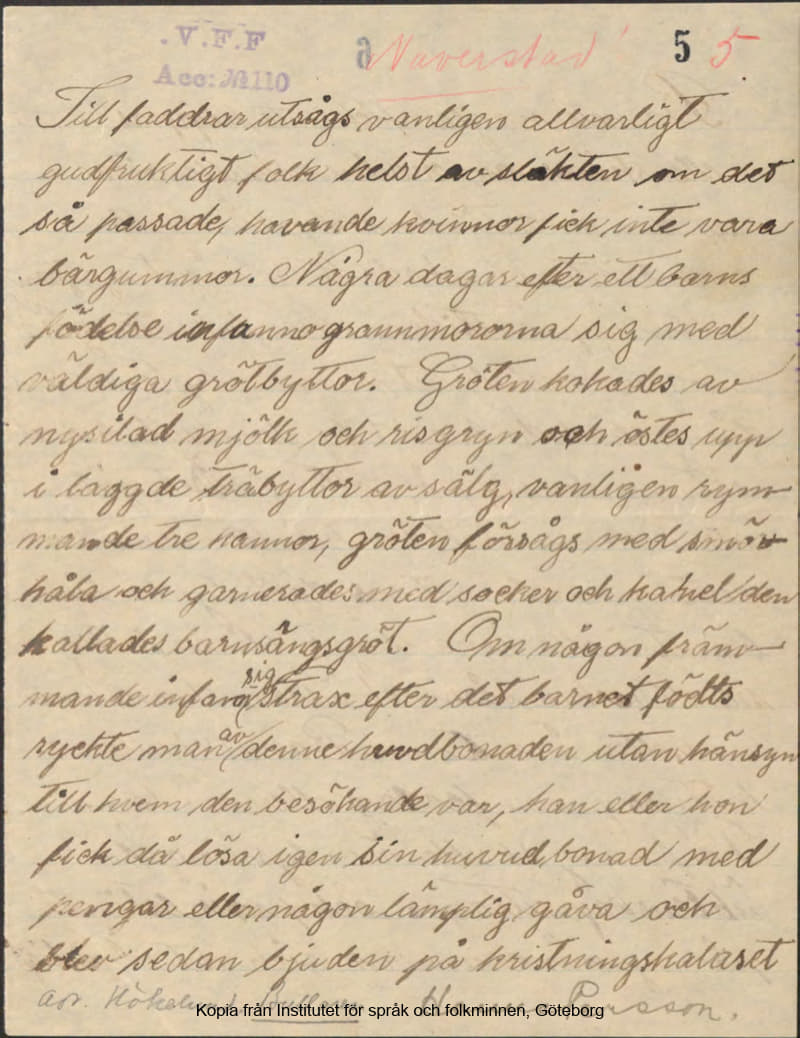 V.F.F
Acc: № 110
Naverstad
5 5
Till faddrar utsågs vanligen allvarligt
gudfruktigt folk helst av släkten om det
så passade, havande kvinnor fick inte vara
bärgummor. Några dagar efter ett barns
födelse infanno grannmororna sig med
väldiga grötbyttor. Gröten kokades av
nysilad mjölk och risgryn och östes upp
i laggde träbyttor av sälg, vanligen rym-
mande tre kannor, gröten försågs med smör-
håla och garnerades med socker och kanel den
kallades barnsängsgröt. Om någon främ-
mande infann sig strax efter det barnet födts
ryckte man av denne huvdbonaden utan hänsyn
till hvem den besökande var, han eller hon
fick då lösa igen sin huvud,bonad med
pengar eller någon lämplig gåva och
blev sedan bjuden på kristningskalaset
Persson.
Kopia från Institutet för språk och folkminnen, Göteborg